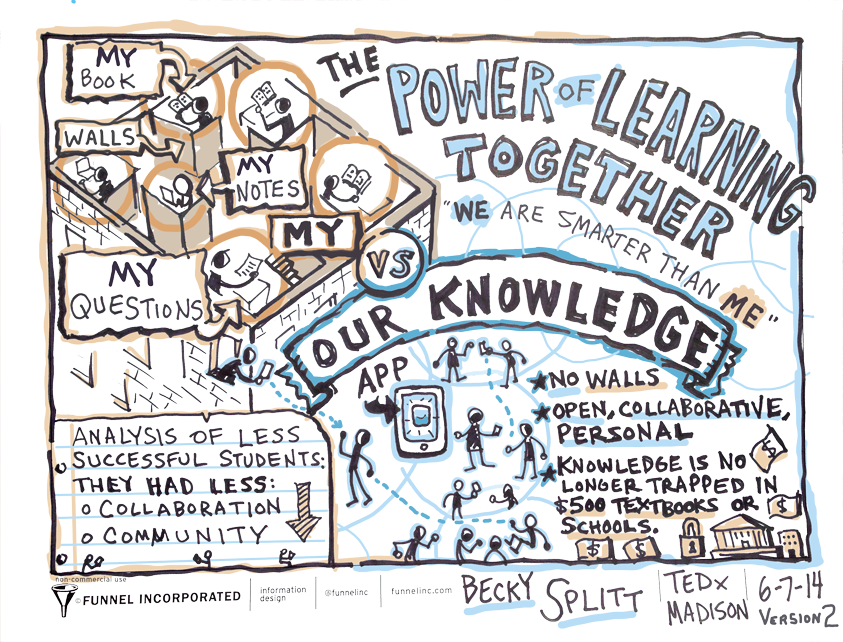 MY
BOOK
WALLS
MY
NOTES
MY
QUESTIONS
THE
POWER OF LEARNING
TOGETHER
"WE ARE SMARTER THAN ME"
MY
VS
OUR KNOWLEDGE
APP
NO WALLS
OPEN, COLLABORATIVE,
PERSONAL
KNOWLEDGE IS NO
LONGER TRAPPED IN
$500 TEXTBOOKS OR
SCHOOLS.
$
$
$
$
ANALYSIS OF LESS
SUCCESSFUL STUDENTS:
THEY HAD LESS:
o COLLABORATION
o COMMUNITY
non-commercial use
© FUNNEL INCORPORATED
information
design
@funnelinc
funnelinc.com
BECKY
SPLITT
TEDx
MADISON
6-7-14
VERSION 2